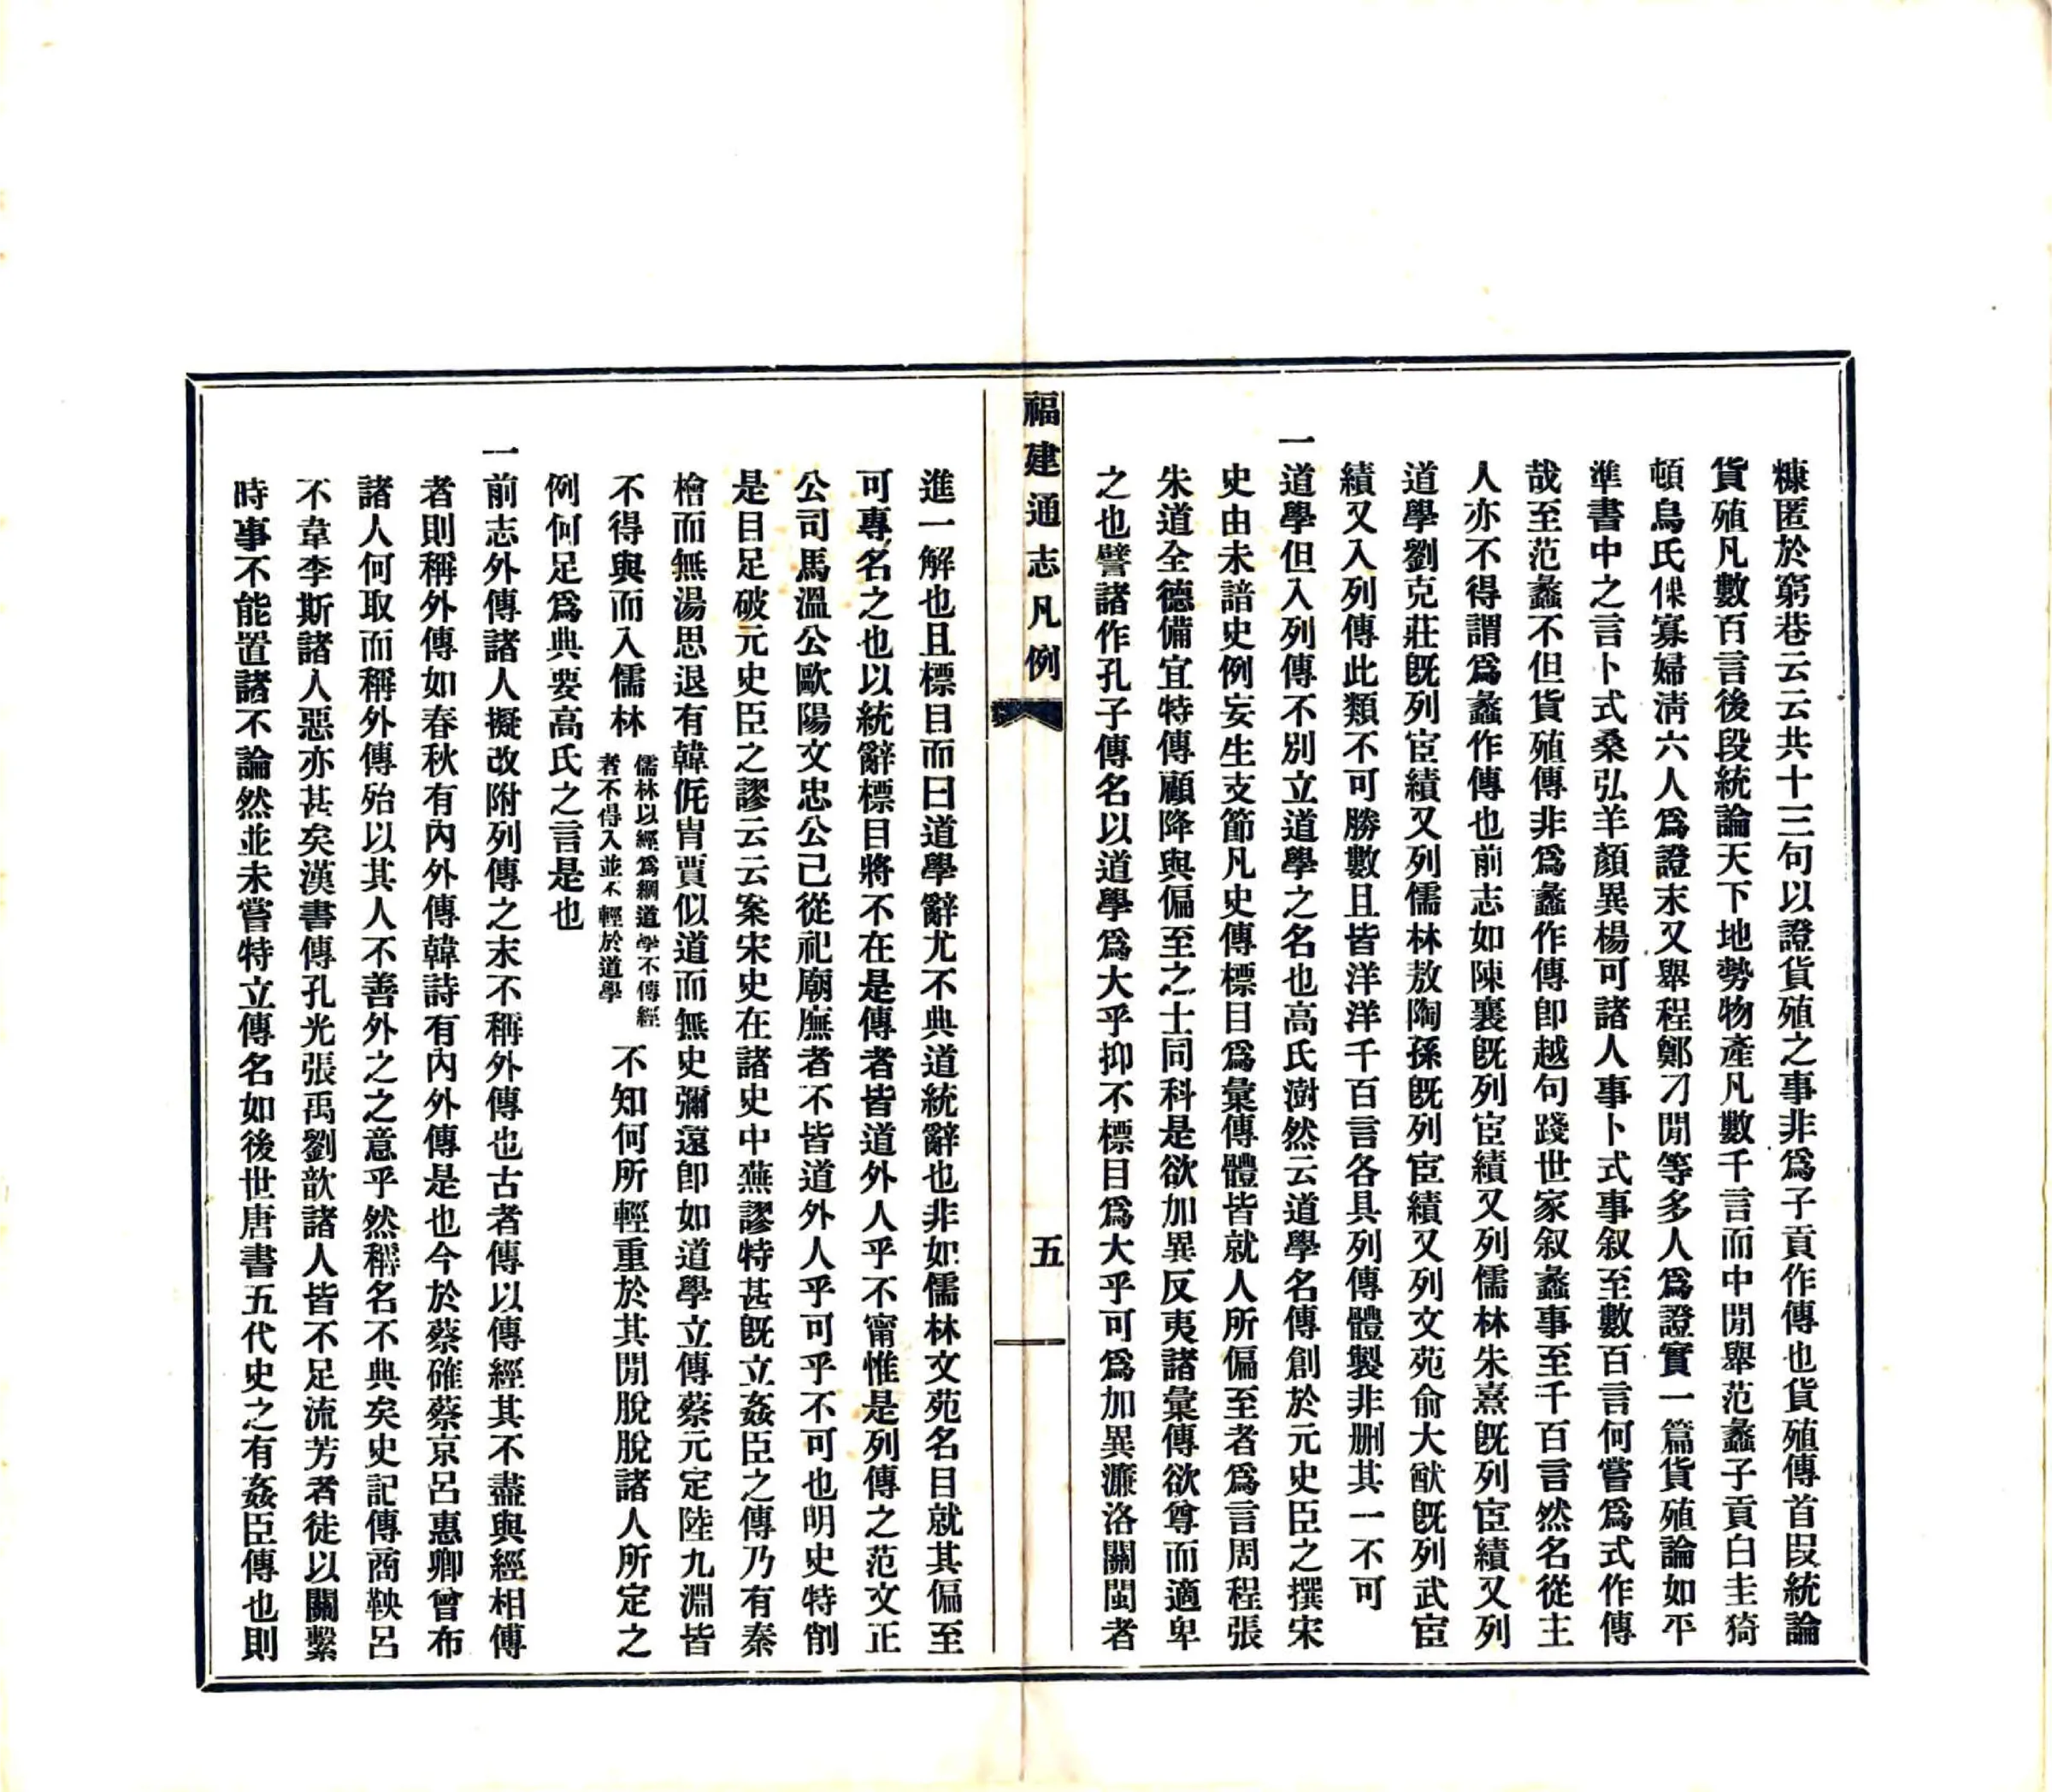 糠匿於窮巷云云共十三句以證貨殖之事非爲子貢作傳也貨殖傳首段統論
貨殖凡數百言後段統論天下地勢物產凡數千言而中閒舉范蠡子貢白圭猗
頓烏氏倮寡婦清六人爲證末又舉程鄭刁閒等多人爲證實一篇貨殖論如平
準書中之言卜式桑弘羊顏異楊可諸人事卜式事叙至數百言何嘗爲式作傳
哉至范蠡不但貨殖傳非爲蠡作傳卽越句踐世家叙蠡事至千百言然名從主
人亦不得謂爲蠡作傳也前志如陳襄旣列宦績又列儒林朱熹旣列宦績又列
道學劉克莊旣列宦績又列儒林敖陶孫旣列宦績又列文苑俞大猷旣列武宦
績又入列傳此類不可勝數且皆洋洋千百言各具列傳體製非刪其一不可
一道學但入列傳不別立道學之名也高氏澍然云道學名傳創於元史臣之撰宋
史由未諳史例妄生支節凡史傳標目爲彙傳體皆就人所偏至者爲言周程張
朱道全德備宜特傳顧降與偏至之士同科是欲加異反夷諸彙傳欲尊而適卑
之也譬諸作孔子傳名以道學爲大乎抑不標目爲大乎可爲加異濂洛關閩者
福建通志凡例
五
進一解也且標目而曰道學辭尤不典道統辭也非如儒林文苑名目就其偏至
可專名之也以統辭標目將不在是傳者皆道外人乎不甯惟是列傳之范文正
公司馬溫公歐陽文忠公已從祀廟廡者不皆道外人乎可乎不可也明史特削
是目足破元史臣之謬云云案宋史在諸史中蕪謬特甚旣立姦臣之傳乃有秦
檜而無湯思退有韓侂冑賈似道而無史彌遠卽如道學立傳蔡元定陸九淵皆
不得與而入儒林儒林以經爲綱道學不傳經
者不得入並不輕於道學不知何所輕重於其閒脫脫諸人所定之
例何足爲典要高氏之言是也
一前志外傳諸人擬改附列傳之末不稱外傳也古者傳以傳經其不盡與經相傅
者則稱外傳如春秋有內外傳韓詩有內外傳是也今於蔡確蔡京呂惠卿曾布
諸人何取而稱外傳殆以其人不善外之之意乎然稱名不典矣史記傳商鞅呂
不韋李斯諸人惡亦甚矣漢書傳孔光張禹劉歆諸人皆不足流芳者徒以關繫
時事不能置諸不論然並未嘗特立傳名如後世唐書五代史之有姦臣傳也則